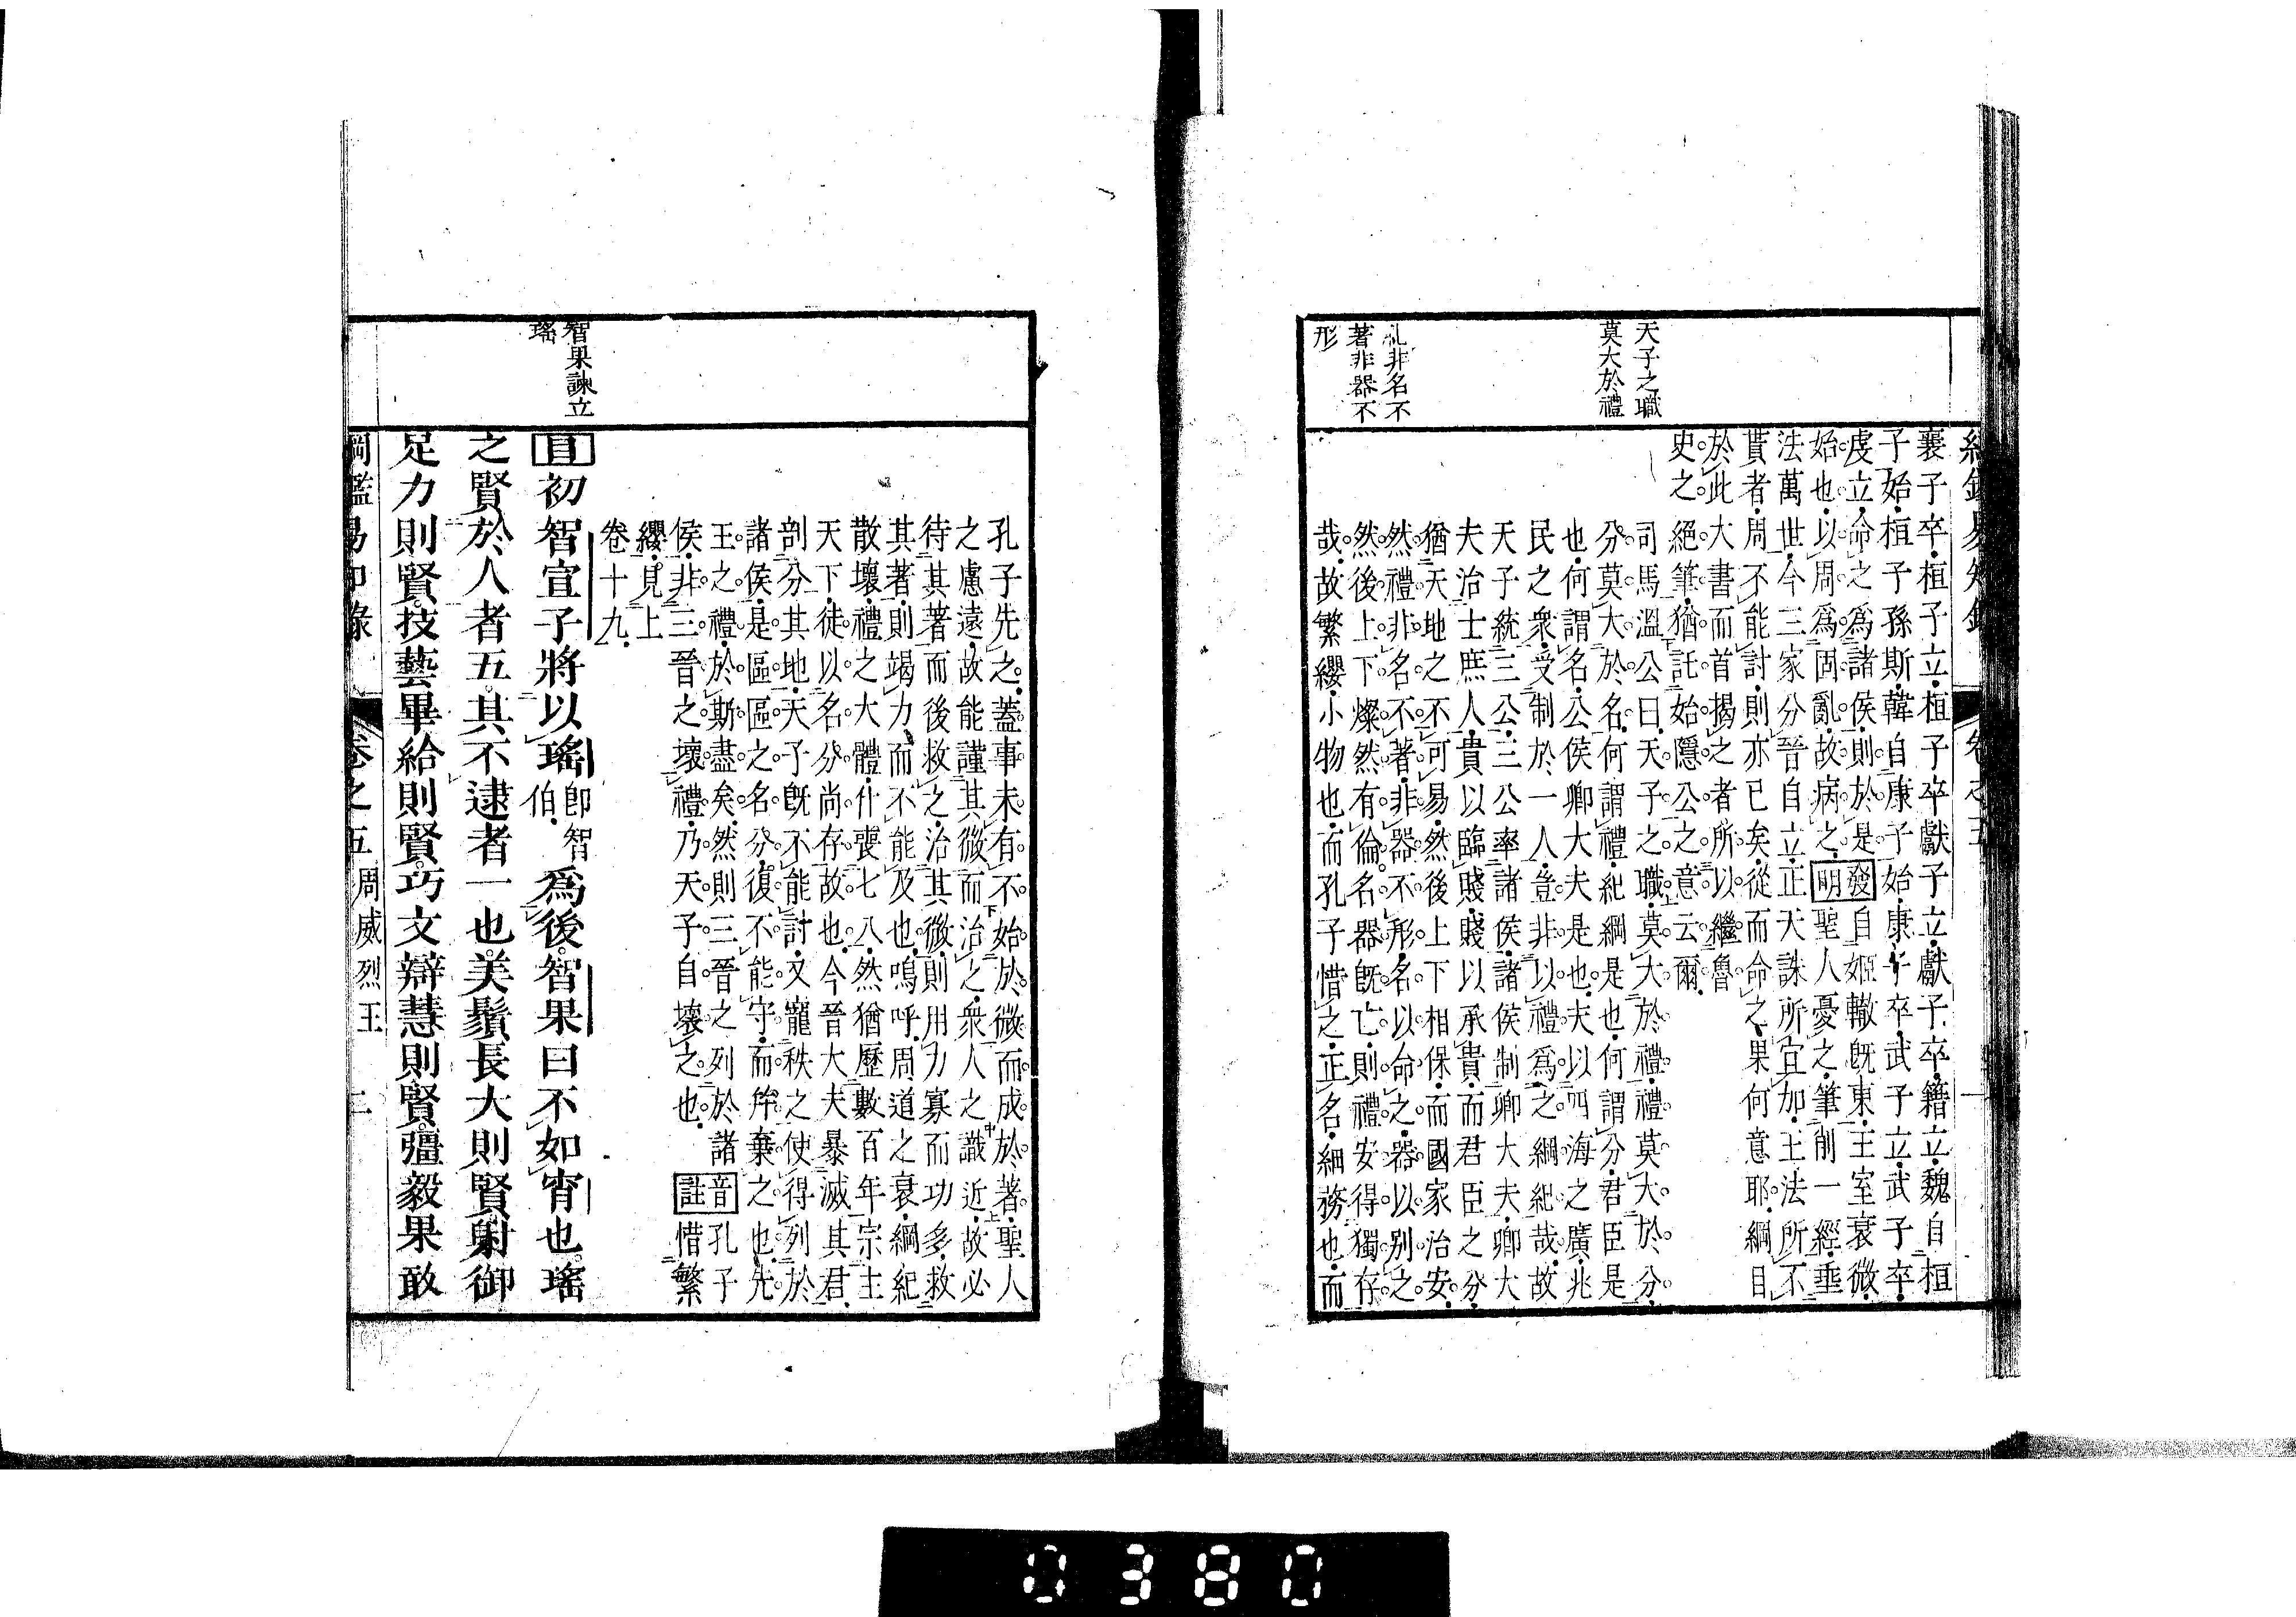 天子之職
莫大於禮
禮非名不
著非器不
形
襄子卒桓子立桓子卒獻子立獻子卒籍立魏自桓
子始桓子孫斯韓自康子始康子卒武子立武子卒
虔立命之爲諸侯則於是發自姬轍既東王室衰微
始也以周爲固亂故病之明聖人憂之筆削一經垂
法萬世今三家分晉自立正天誅所宜加王法所不
貰者周不能討則亦已矣從而命之果何意耶綱目
於此大書而首揭之者所以繼魯
史之絕筆猶託始隱公之意云爾
司馬溫公曰天子之職莫大於禮禮莫大於分
分莫大於名何謂禮紀綱是也何謂分君臣是
也何謂名公侯卿大夫是也夫以四海之廣兆
民之衆受制於一人豈非以禮爲之綱紀哉故
天子統三公三公率諸侯諸侯制卿大夫卿大
夫治士庶人貴以臨賤賤以承貴而君臣之分
猶天地之不可易然後上下相保而國家治安
然禮非名不著非器不形名以命之器以别之
然後上下燦然有倫名器既亡則禮安得獨存
哉故繁纓小物也而孔子惜之正名細務也而
智果諫立
瑤
孔子先之蓋事未有不始於微而成於著聖人
之慮遠故能謹其微而治之衆人之識近故必
待其著而後救之治其微則用力寡而功多救
其著則竭力而不能及也嗚呼周道之衰綱紀
散壞禮之大體什喪七八然猶歷數百年宗主
天下徒以名分尚存故也今晉大夫暴滅其君
剖分其地天子既不能討又寵秩之使得列於
諸侯是區區之名分復不能守而并棄之也先
王之禮於斯盡矣然則三晉之列於諸音孔子
侯非三晉之壞禮乃天子自壞之也註惜繁
纓見上
卷十九
目初智宣子將以瑤即智伯爲後智果曰不如宵也瑤
之賢於人者五其不逮者一也美鬚長大則賢射御
足力則賢技藝畢給則賢巧文辯慧則賢彊毅果敢
綱鑑易知錄 卷之五 周威烈王 二
0380